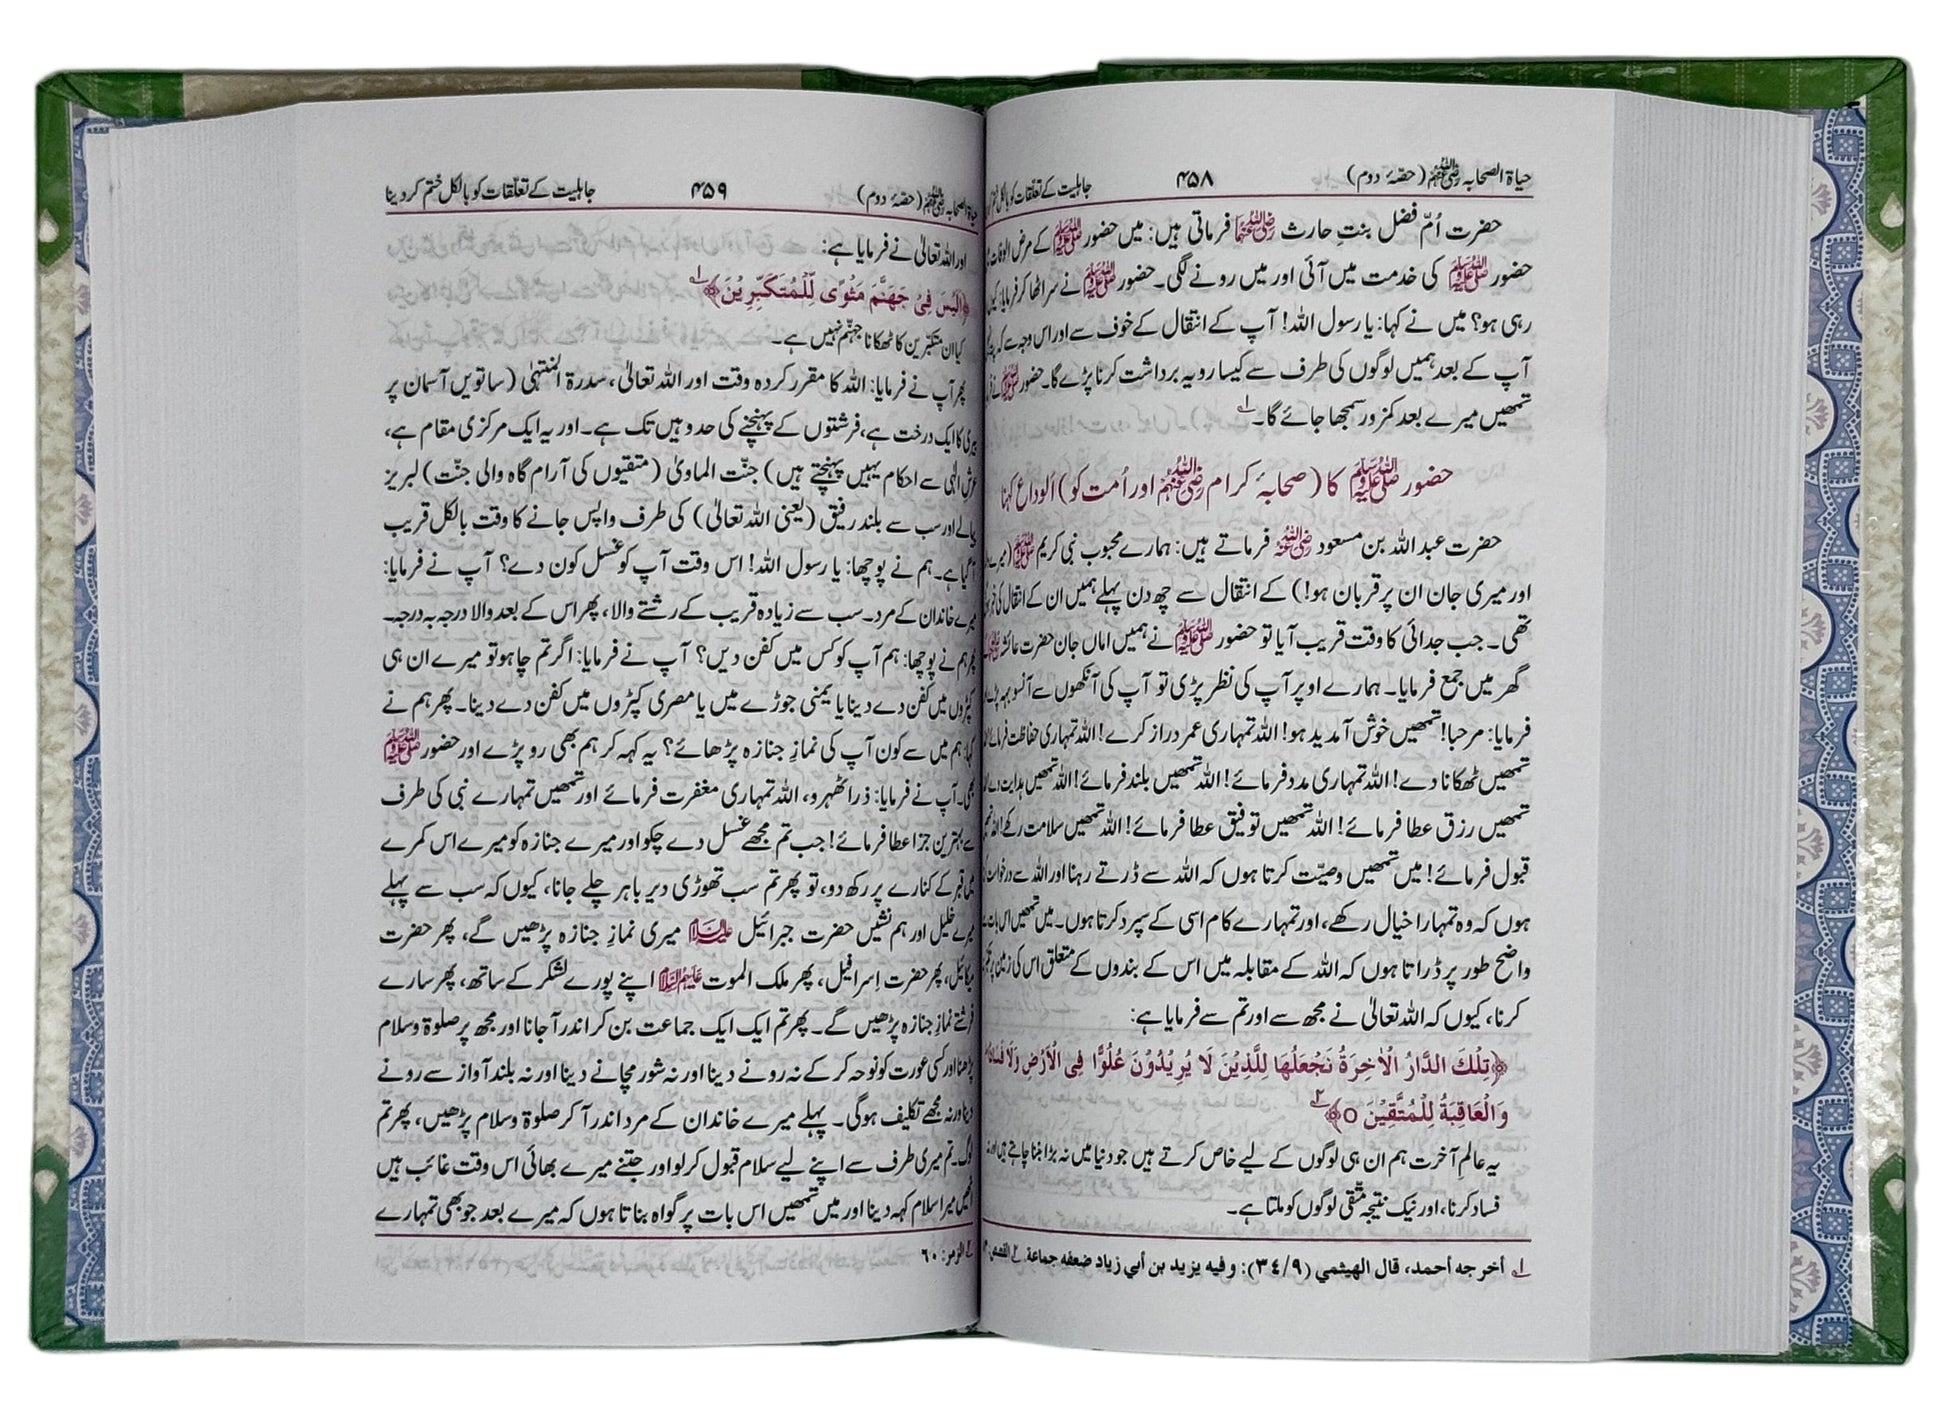 حیاۃ الصحابہ رضی اللہ عنہم (حصّہ دوم)
۴۵۸
جاہلیت کے تعلّقات کو بالکل ختم کر
حضرت اُمّ فضل بنتِ حارث رضی اللہ عنہا فرماتی ہیں: میں حضور ﷺ کے مرض الوفات
حضور ﷺ کی خدمت میں آئی اور میں رونے لگی۔ حضور ﷺ نے سر اٹھا کر فرمایا: کیوں
رہی ہو؟ میں نے کہا: یا رسول اللہ! آپ کے انتقال کے خوف سے اور اس وجہ سے کہ
آپ کے بعد ہمیں لوگوں کی طرف سے کیسا رویہ برداشت کرنا پڑے گا۔ حضور ﷺ نے
تمھیں میرے بعد کمزور سمجھا جائے گا۔ ؂۱
حضور ﷺ کا (صحابۂ کرام رضی اللہ عنہم اور اُمت کو) اَلوداع کہنا
حضرت عبد اللہ بن مسعود رضی اللہ عنہ فرماتے ہیں: ہمارے محبوب نبی کریم ﷺ (میرے
اور میری جان ان پر قربان ہو!) کے انتقال سے چھ دن پہلے ہمیں ان کے انتقال کی
تھی۔ جب جدائی کا وقت قریب آیا تو حضور ﷺ نے ہمیں اماں جان حضرت عائشہ
گھر میں جمع فرمایا۔ ہمارے اوپر آپ کی نظر پڑی تو آپ کی آنکھوں سے آنسو بہہ پڑے
فرمایا: مرحبا! تمھیں خوش آمدید ہو! اللہ تمہاری عمر دراز کرے! اللہ تمہاری حفاظت فرمائے!
تمھیں ٹھکانا دے! اللہ تمہاری مدد فرمائے! اللہ تمھیں بلند فرمائے! اللہ تمھیں ہدایت دے!
تمھیں رزق عطا فرمائے! اللہ تمھیں توفیق عطا فرمائے! اللہ تمھیں سلامت رکھے! اللہ
قبول فرمائے! میں تمھیں وصیّت کرتا ہوں کہ اللہ سے ڈرتے رہنا اور اللہ سے درخواست
ہوں کہ وہ تمہارا خیال رکھے، اور تمہارے کام اسی کے سپرد کرتا ہوں۔ میں تمھیں اس بات
واضح طور پر ڈراتا ہوں کہ اللہ کے مقابلہ میں اس کے بندوں کے متعلق اس کی زمین پر
کرنا، کیوں کہ اللہ تعالیٰ نے مجھ سے اور تم سے فرمایا ہے:
﴿تِلْكَ الدَّارُ الْاٰخِرَةُ نَجْعَلُهَا لِلَّذِيْنَ لَا يُرِيْدُوْنَ عُلُوًّا فِي الْاَرْضِ وَلَا فَسَادًا
وَالْعَاقِبَةُ لِلْمُتَّقِيْنَ ۝﴾ ؂۲
یہ عالمِ آخرت ہم ان ہی لوگوں کے لیے خاص کرتے ہیں جو دنیا میں نہ بڑا بننا چاہتے ہیں اور نہ
فساد کرنا، اور نیک نتیجہ متّقی لوگوں کو ملتا ہے۔
؂۱ أخرجه أحمد، قال الهيثمي (٣٤/٩): وفيه يزيد بن أبي زياد ضعفه جماعة. ؂۲ القصص:
حیاۃ الصحابہ رضی اللہ عنہم (حصّہ دوم)
۴۵۹
جاہلیت کے تعلّقات کو بالکل ختم کر دینا
اور اللہ تعالیٰ نے فرمایا ہے:
﴿اَلَيْسَ فِيْ جَهَنَّمَ مَثْوًى لِّلْمُتَكَبِّرِيْنَ﴾ ؂۱
کیا ان متکبّرین کا ٹھکانا جہنّم نہیں ہے۔
پھر آپ نے فرمایا: اللہ کا مقرر کردہ وقت اور اللہ تعالیٰ، سدرۃ المنتہٰی (ساتویں آسمان پر
بیری کا ایک درخت ہے، فرشتوں کے پہنچنے کی حد وہیں تک ہے۔ اور یہ ایک مرکزی مقام ہے،
عرشِ الٰہی سے احکام یہیں پہنچتے ہیں) جنّت الماویٰ (متقیوں کی آرام گاہ والی جنّت) لبریز
پیالے اور سب سے بلند رفیق (یعنی اللہ تعالیٰ) کی طرف واپس جانے کا وقت بالکل قریب
آگیا ہے۔ ہم نے پوچھا: یا رسول اللہ! اس وقت آپ کو غسل کون دے؟ آپ نے فرمایا:
میرے خاندان کے مرد۔ سب سے زیادہ قریب کے رشتے والا، پھر اس کے بعد والا درجہ بہ درجہ۔
پھر ہم نے پوچھا: ہم آپ کو کس میں کفن دیں؟ آپ نے فرمایا: اگر تم چاہو تو میرے ان ہی
کپڑوں میں کفن دے دینا یا یمنی جوڑے میں یا مصری کپڑوں میں کفن دے دینا۔ پھر ہم نے
کہا: ہم میں سے کون آپ کی نمازِ جنازہ پڑھائے؟ یہ کہہ کر ہم بھی رو پڑے اور حضور ﷺ
بھی۔ آپ نے فرمایا: ذرا ٹھہرو، اللہ تمہاری مغفرت فرمائے اور تمھیں تمہارے نبی کی طرف
سے بہترین جزا عطا فرمائے! جب تم مجھے غسل دے چکو اور میرے جنازہ کو میرے اس کمرے
میں قبر کے کنارے پر رکھ دو، تو پھر تم سب تھوڑی دیر باہر چلے جانا، کیوں کہ سب سے پہلے
میرے خلیل اور ہم نشیں حضرت جبرائیل علیہ السلام میری نمازِ جنازہ پڑھیں گے، پھر حضرت
میکائیل، پھر حضرت اِسرافیل، پھر ملک الموت علیہم السلام اپنے پورے لشکر کے ساتھ، پھر سارے
فرشتے نمازِ جنازہ پڑھیں گے۔ پھر تم ایک ایک جماعت بن کر اندر آجانا اور مجھ پر صلوٰۃ وسلام
پڑھنا اور کسی عورت کو نوحہ کر کے نہ رونے دینا اور نہ شور مچانے دینا اور نہ بلند آواز سے رونے
دینا ورنہ مجھے تکلیف ہوگی۔ پہلے میرے خاندان کے مرد اندر آکر صلوٰۃ وسلام پڑھیں، پھر تم
لوگ۔ تم میری طرف سے اپنے لیے سلام قبول کر لو اور جتنے میرے بھائی اس وقت غائب ہیں
انھیں میرا سلام کہہ دینا اور میں تمھیں اس بات پر گواہ بناتا ہوں کہ میرے بعد جو بھی تمہارے
الزمر: ٦٠